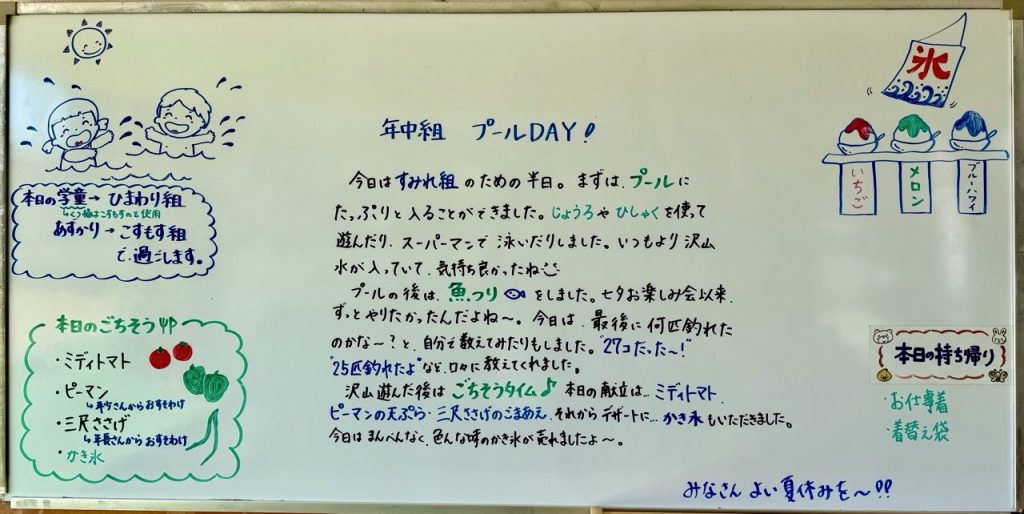 年中組 プールDAY!
今日はすみれ組のための半日。まずは、プールに
たっぷりと入ることができました。じょうろやひしゃくを使って
遊んだり、スーパーマンで泳いだりしました。いつもより沢山
水が入っていて、気持ち良かったね
プールの後は、魚つりをしました。七夕お楽しみ会以来、
ずっとやりたかったんだよね〜。今日は、最後に何匹釣れた
のかな〜?と、自分で数えてみたりもしました。"27コだった〜!"
"25匹釣れたよ"など、口々に教えてくれました。
沢山遊んだ後はごちそうタイム♪ 本日の献立は…ミディトマト、
ピーマンの天ぷら・三尺ささげのごまあえ、それからデザートに…かき氷もいただきました。
今日はまんべんなく、色んな味のかき氷が売れましたよ〜。
みなさん よい夏休みを〜!!
本日の学童→ひまわり組
あずかり→こすもす組
で、過ごします。
本日のごちそう
・ミディトマト
・ピーマン
↳年少さんからおすそわけ
・三尺ささげ
↳年長さんからおすそわけ
・かき氷
氷
いちご
メロン
ブルーハワイ
本日の持ち帰り
・お仕事着
・着替え袋